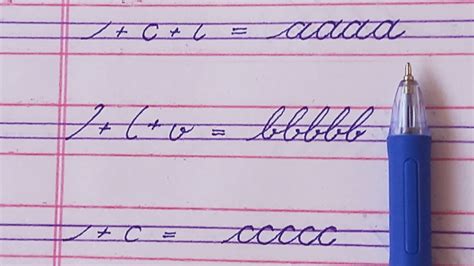 / + c + l = aaaaa
/ + l + v = bbbbb
/ + c = ccccc